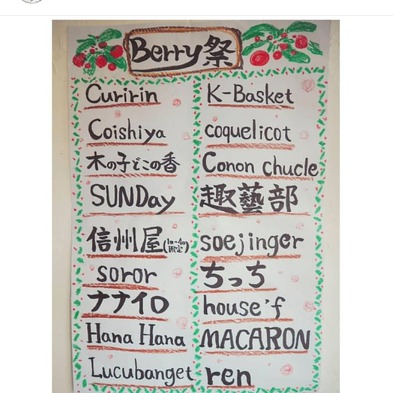 Berry祭
Curirin
Coishiya
木の子どこの香
SUNDay
信州屋
soror
ナナイロ
Hana Hana
Lucubanget
K-Basket
coquelicot
Conon chucle
趣藝部
soejinger
ちっち
house'f
MACARON
ren